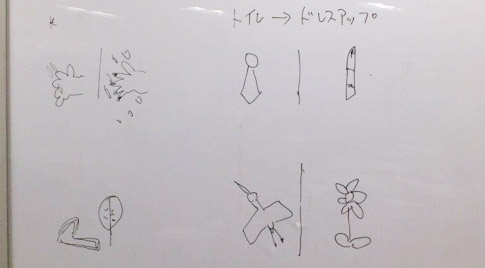 トイレ→ドレスアップ